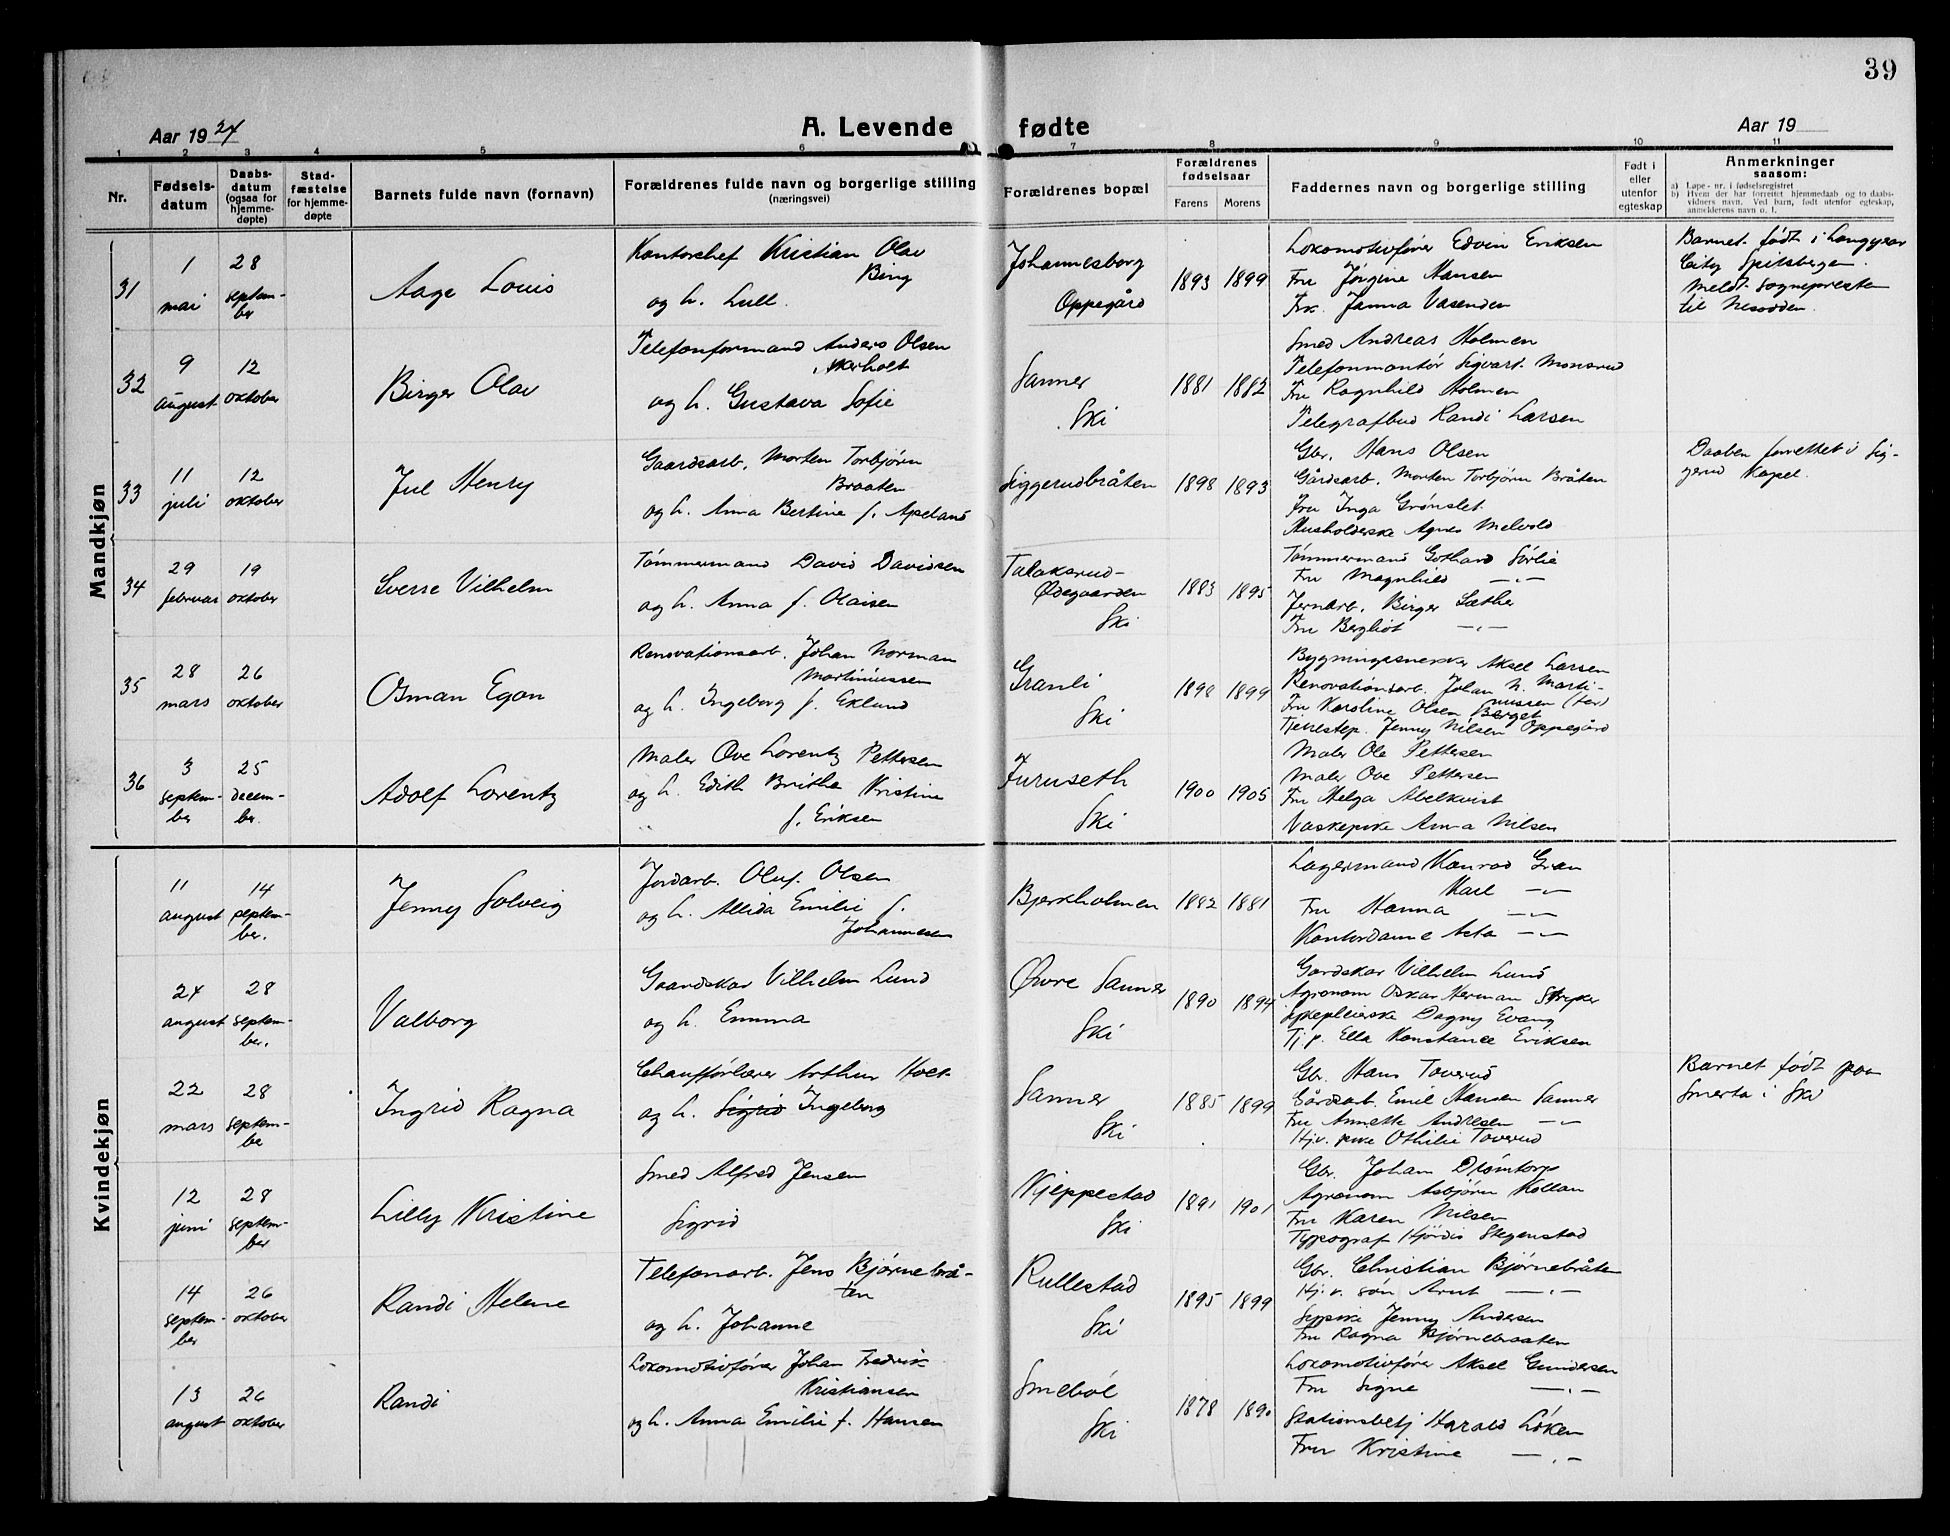 39
Aar 1924
A. Levende fødte
Aar 19
1 2 3 4 5 6 7 8 9 10 11
Nr.
Fødsels-
datum
Daabs-
datum
(ogsaa for
hjemme-
døpte)
Stad-
fæstelse
for hjemme-
døpte
Barnets fulde navn (fornavn)
Forældrenes fulde navn og borgerlige stilling
(næringsvei)
Forældrenes bopæl
Forældrenes
fødselsaar
Farens Morens
Faddernes navn og borgerlige stilling
Født i
eller
utenfor
egteskap
Anmerkninger
saasom:
a) Løpe-nr. i fødselsregistret
b) Hvem der har forrettet hjemmedaab og to daabs-
vidners navn. Ved barn, født utenfor egteskap,
anmelderens navn o. l.
Mandkjøn
31
1
mai
28
septem-
ber
Aage Louis
Kontorchef Kristian Olav
Bing
og h. Lull.
Johannesborg
Oppegård
1893 1899
Lokomotivfører Edvin Eriksen
Fru Jørgine Hansen
Frk. Janna Vasenden
Barnet født i Longyear
City Spitsbergen.
Meldt sognepresten
til Nesodden.
32
9
august
12
oktober
Birger Olav
Telefonformand Anders Olsen
Akerholt
og h. Gustava Sofie
Sanner
Ski
1881 1882
Smed Andreas Holmen
Telefonmontør Sigvart Monsrud
Fru Ragnhild Holmen
Telegrafbud Randi Larsen
33
11
juli
12
oktober
Jul Henry
Gaardsarb. Morten Torbjørn
Braaten
og h. Anna Bertine f. Apeland
Siggerudbråten
1898 1893
Gbr. Hans Olsen
Gårdsarb. Morten Torbjørn Bråten
Fru Inga Grønslet
Husholderske Agnes Melvold
Daaben forrettet i Sig-
gerud Kapel.
34
29
februar
19
oktober
Sverre Vilhelm
Tømmermand David Davidsen
og h. Anna f. Olaisen
Talaksrud-
Ødegaarden
Ski
1883 1895
Tømmermand Gothard Sørlie
Fru Magnhild —„—
Jernarb. Birger Sæther
Fru Bergliot —„—
35
28
mars
26
oktober
Osman Egon
Renovationsarb. Johan Norman
Martiniussen
og h. Ingeborg f. Eklund
Granli
Ski
1898 1899
Bygningssnekker Aksel Larsen
Renovationsarb. Johan N. Marti-
niussen (far)
Fru Karoline Olsen Berget
Tjenestep. Jenny Nilsen Oppegård
36
3
septem-
ber
25
decem-
ber.
Adolf Lorentz
Maler Ove Lorentz Pettersen
og h. Edith Brithe Kristine
f. Eriksen
Furuseth
Ski
1900 1905
Maler Ole Pettersen
Maler Ove Pettersen
Fru Helga Abelkvist
Vaskepike Anna Nilsen
Kvindekjøn
11
august
14
septem-
ber.
Jenny Solveig
Jordarb. Oluf Olsen
og h. Allida Emilie f.
Johannesen
Bjerkholmen
1882 1881
Lagermand Konrad Gran
Karl —„—
Fru Hanna —„—
Kontordame Asta —„—
24
august
28
septem-
ber.
Valborg
Gaardskar Vilhelm Lund
og h. Emma
Øvre Sanner
Ski
1890 1894
Gardskar Vilhelm Lund
Agronom Oskar Herman Stryker
Sykepleierske Dagny Evang
Tj.p. Ella Konstance Eriksen
22
mars
28
septem-
ber
Ingrid Ragna
Chaufførlærer Arthur Holt
og h. Sigrid Ingeborg
Sanner
Ski
1885 1899
Gbr. Hans Taverud
Gårdsarb. Emil Hansen Sanner
Fru Annette Andresen —„—
Hjv. pike Othilie Taverud
Barnet født paa
Smerta i Ski
12
juni
28
septem-
ber
Lilly Kristine
Smed Alfred Jensen
Sigrid
Kjeppestad
Ski
1891 1901
Gbr. Johan Drømtorp
Agronom Asbjørn Kollan
Fru Karen Nilsen
Typograf Hjørdis Stegenstad
14
septem-
ber
26
oktober
Randi Helene
Telefonarb. Jens Bjørnebrå-
ten
og h. Johanne
Rullestad
Ski
1895 1899
Gbr. Christian Bjørnebråten
Hj.v. søn Arnt —„—
Jenny Andersen
Fru Ragna Bjørnebraaten
13
august
26
oktober
Randi
Lokomotivfører Johan Fredrik
Kristiansen
og h. Anna Emilie f. Hansen
Smebøl
Ski
1878 1890
Lokomotivfører Aksel Gundersen
Fru Signe —„—
Stationsbetj Harald Løken
Fru Kristine —„—